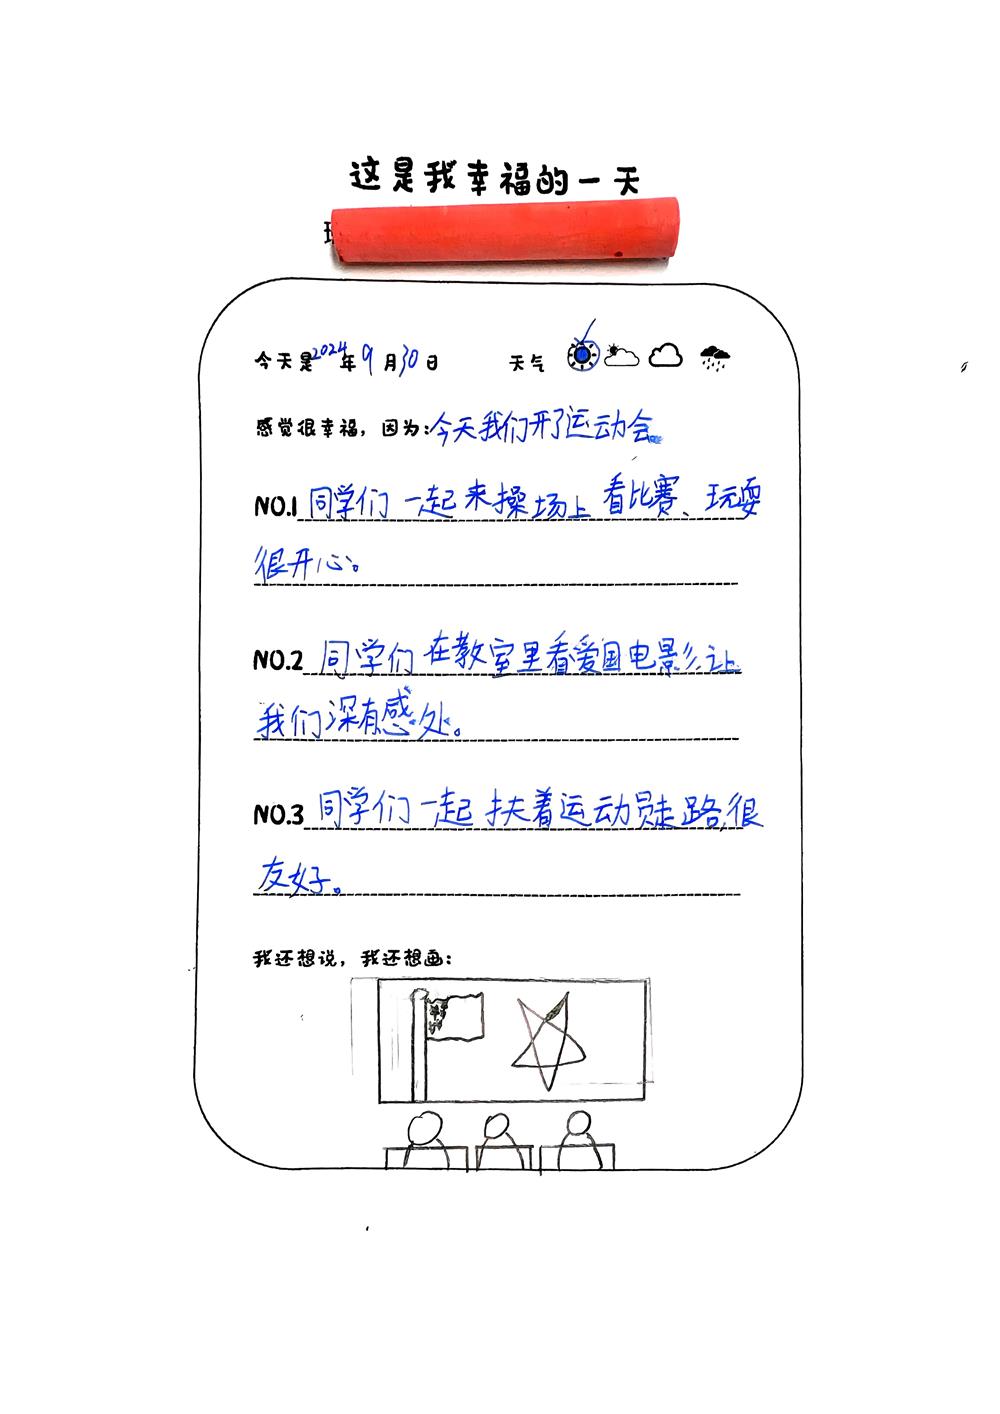 这是我幸福的一天
今天是2024年9月30日 天气
感觉很幸福，因为：今天我们开了运动会。
NO.1 同学们一起来操场上看比赛、玩耍
很开心。
NO.2 同学们在教室里看爱国电影，让
我们深有感处。
NO.3 同学们一起扶着运动员走路，很
友好。
我还想说，我还想画：